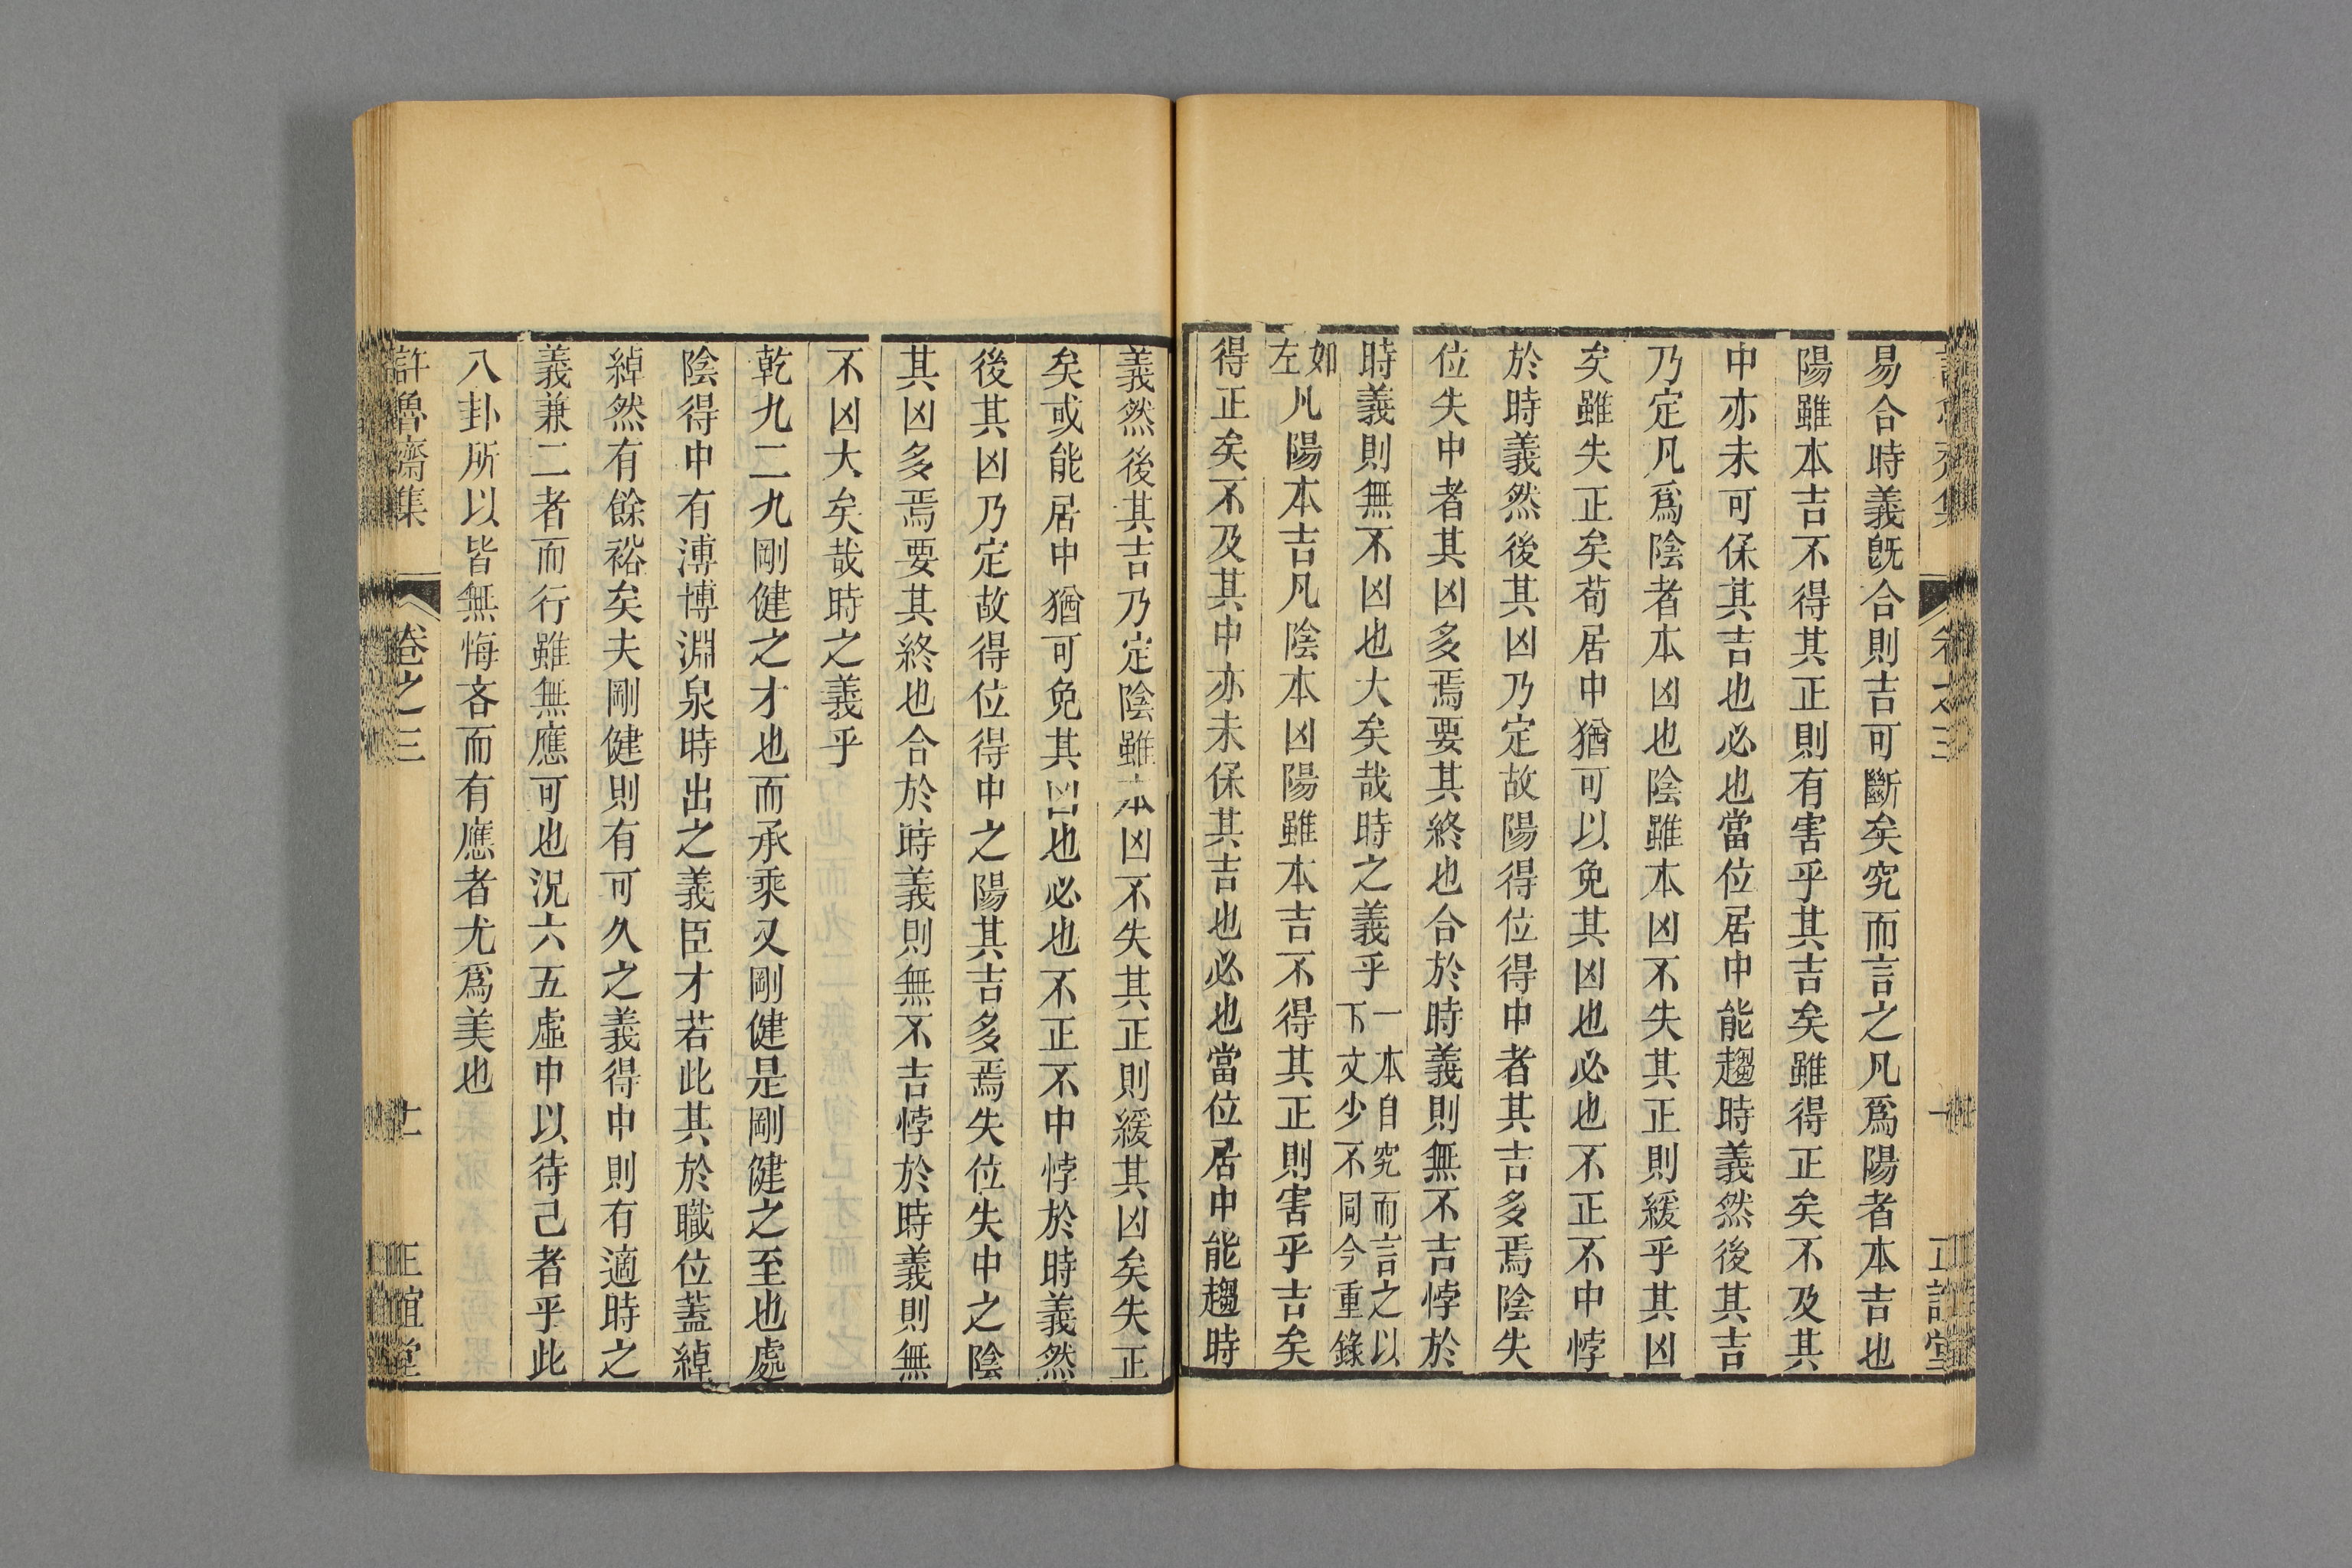 易合時義既合則吉可斷矣究而言之凡爲陽者本吉也
陽雖本吉不得其正則有害乎其吉矣雖得正矣不及其
中亦未可保其吉也必也當位居中能趨時義然後其吉
乃定凡爲陰者本凶也陰雖本凶不失其正則緩乎其凶
矣雖失正矣苟居中猶可以免其凶也必也不正不中悖
於時義然後其凶乃定故陽得位得中者其吉多焉陰失
位失中者其凶多焉要其終也合於時義則無不吉悖於
時義則無不凶也大矣哉時之義乎一本自究而言之以下文少不同今重錄
如左凡陽本吉凡陰本凶陽雖本吉不得其正則害乎吉矣
得正矣不及其中亦未保其吉也必也當位居中能趨時
義然後其吉乃定陰雖本凶不失其正則緩其凶矣失正
矣或能居中猶可免其凶也必也不正不中悖於時義然
後其凶乃定故得位得中之陽其吉多焉失位失中之陰
其凶多焉要其終也合於時義則無不吉悖於時義則無
不凶大矣哉時之義乎
乾九二九剛健之才也而承乘又剛健是剛健之至也處
陰得中有溥博淵泉時出之義臣才若此其於職位蓋綽
綽然有餘裕矣夫剛健則有可久之義得中則有適時之
義兼二者而行雖無應可也況六五虛中以待己者乎此
八卦所以皆無悔吝而有應者尤爲美也
許魯齋集 卷之三 十一 正誼堂